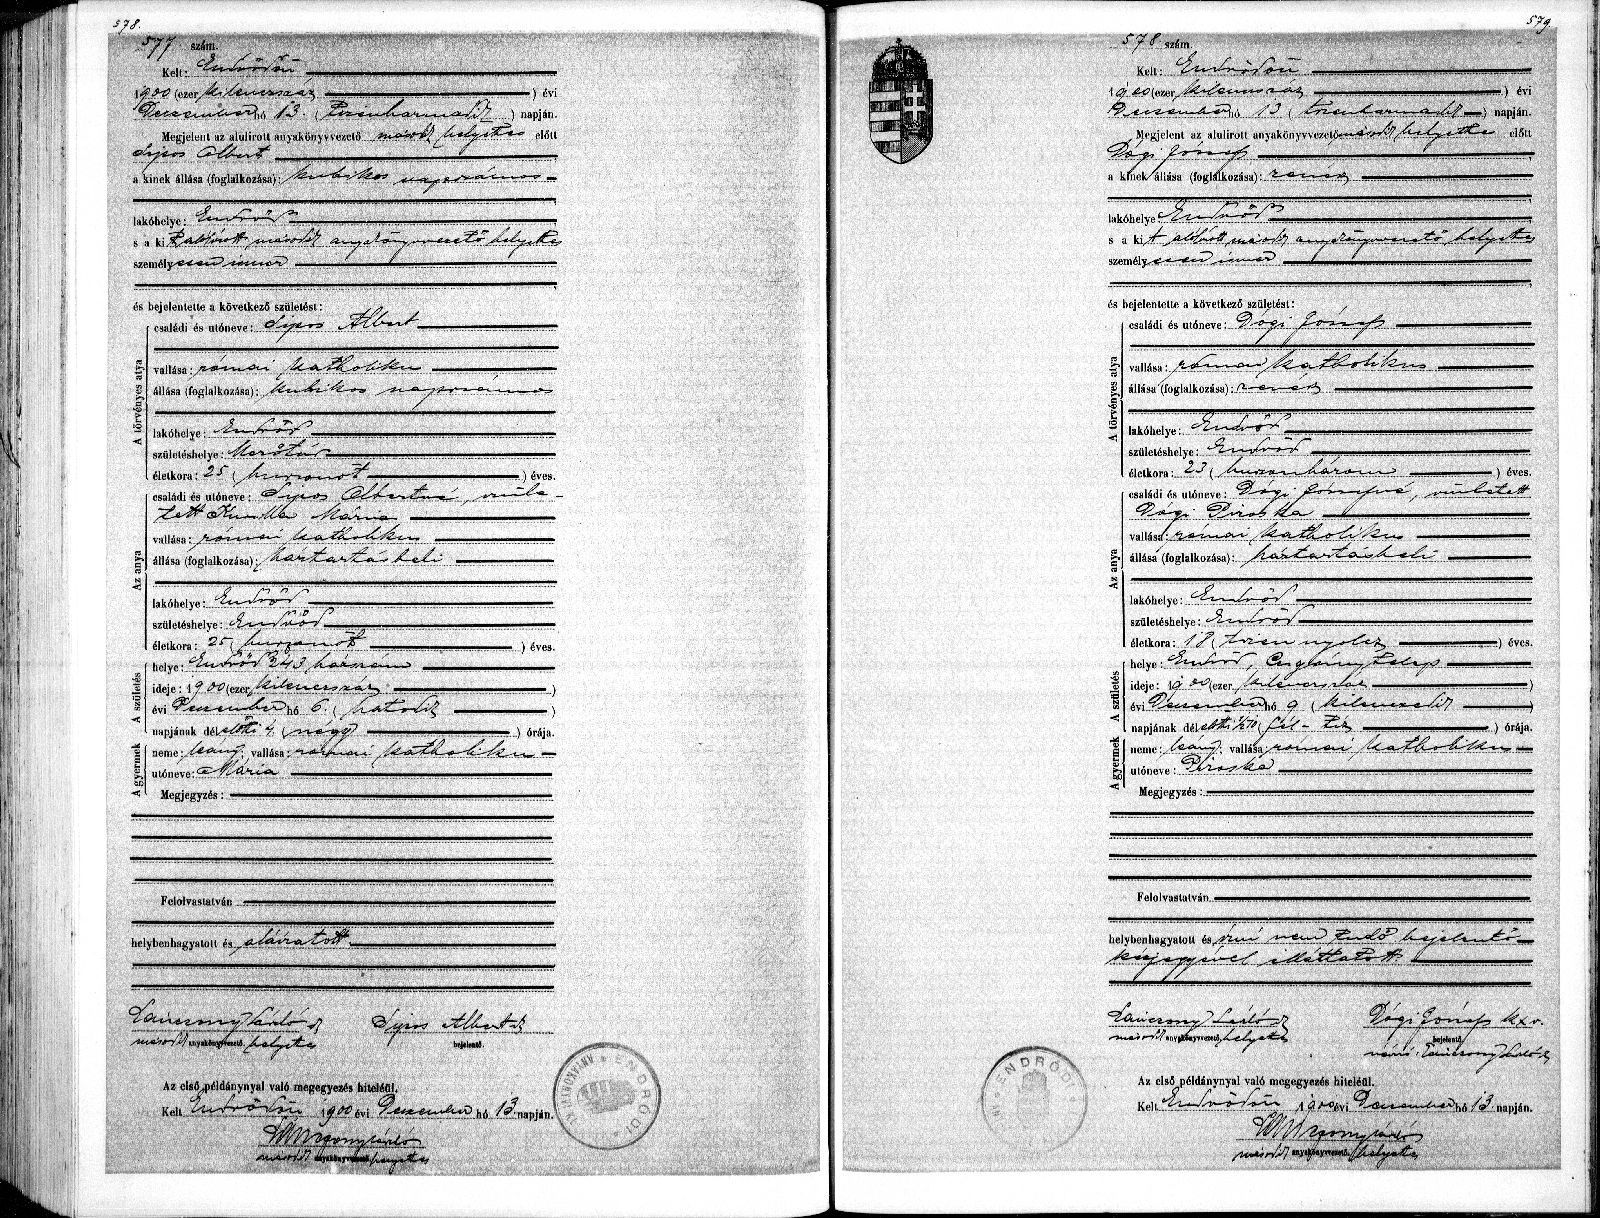 578.
577 szám.
Kelt: Endrődön
1900 (ezer kilenczszáz ) évi
Deczember hó 13. (tizenharmadik ) napján.
Megjelent az alulirott anyakönyvvezető másodh helyettes előtt
Sipos Albert
a kinek állása (foglalkozása): kubikos napszámos
lakóhelye: Endrőd
s a kit alólirott másodh anyakönyvvezető helyettes
személyesen ismer
és bejelentette a következő születést:
A törvényes atya
családi és utóneve: Sipos Albert
vallása: római katholikus
állása (foglalkozása): kubikos napszámos
lakóhelye: Endrőd
születéshelye:
életkora: 25 (huszonöt ) éves.
Az anya
családi és utóneve: Sipos Albertné, szüle-
tett Mária
vallása: római katholikus
állása (foglalkozása): háztartásbeli
lakóhelye: Endrőd
születéshelye: Endrőd
életkora: 25 (huszonöt ) éves.
A születés
helye: Endrőd 343 házszám
ideje: 1900 (ezer kilenczszáz )
évi Deczember hó 6. (hatodik )
napjának délelőtti 4. (négy ) órája.
A gyermek
neme: leány, vallása: római katholikus
utóneve: Mária
Megjegyzés:
Felolvastatván
helybenhagyatott és aláíratott
László
másodh anyakönyvvezető helyettes
Sipos Albert
bejelentő.
Az első példánynyal való megegyezés hiteléül.
Kelt Endrődön 1900 évi Deczember hó 13 napján.
László
másodh anyakönyvvezető helyettes
ENDRŐDI
579
578 szám.
Kelt: Endrődön
1900 (ezer kilenczszáz ) évi
Deczember hó 13 (tizenharmadik ) napján.
Megjelent az alulirott anyakönyvvezető másodh helyettes előtt
Dógi József
a kinek állása (foglalkozása):
lakóhelye: Endrőd
s a kit alólirott másodh anyakönyvvezető helyettes
személyesen ismer
és bejelentette a következő születést:
A törvényes atya
családi és utóneve: Dógi József
vallása: római katholikus
állása (foglalkozása):
lakóhelye: Endrőd
születéshelye: Endrőd
életkora: 23 (huszonhárom ) éves.
Az anya
családi és utóneve: Dógi Józsefné, született
Dógi Piroska
vallása: római katholikus
állása (foglalkozása): háztartásbeli
lakóhelye: Endrőd
születéshelye: Endrőd
életkora: 18 (tizennyolcz ) éves.
A születés
helye: Endrőd,
ideje: 1900 (ezer kilenczszáz )
évi Deczember hó 9 (kilenczedik )
napjának délelőtti 1/210 (fél-tiz ) órája.
A gyermek
neme: leány, vallása római katholikus
utóneve: Piroska
Megjegyzés:
Felolvastatván
helybenhagyatott és írni nem tudó bejelentő
kézjegyével elláttatott
László
másodh anyakönyvvezető, helyettes
Dógi József kxv.
bejelentő.
László
Az első példánynyal való megegyezés hiteléül.
Kelt Endrődön 1900 évi Deczember hó 13 napján.
László
másodh anyakönyvvezető. helyettes
ENDRŐDI